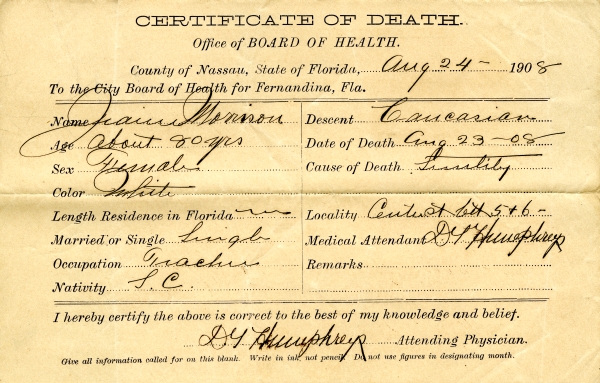 CERTIFICATE OF DEATH.
Office of BOARD OF HEALTH.
County of Nassau, State of Florida, Aug 24 - 1908
To the City Board of Health for Fernandina, Fla.
Name Morrison
Age About 80 yrs
Sex Female
Color White
Length Residence in Florida
Married or Single Single
Occupation Teacher
Nativity S.C.
Descent Caucasian
Date of Death Aug 23 - 08
Cause of Death Senility
Locality Centre St bet 5 + 6 -
Medical Attendant D G Humphreys
Remarks
I hereby certify the above is correct to the best of my knowledge and belief.
D G Humphreys Attending Physician.
Give all information called for on this blank. Write in ink, not pencil. Do not use figures in designating month.